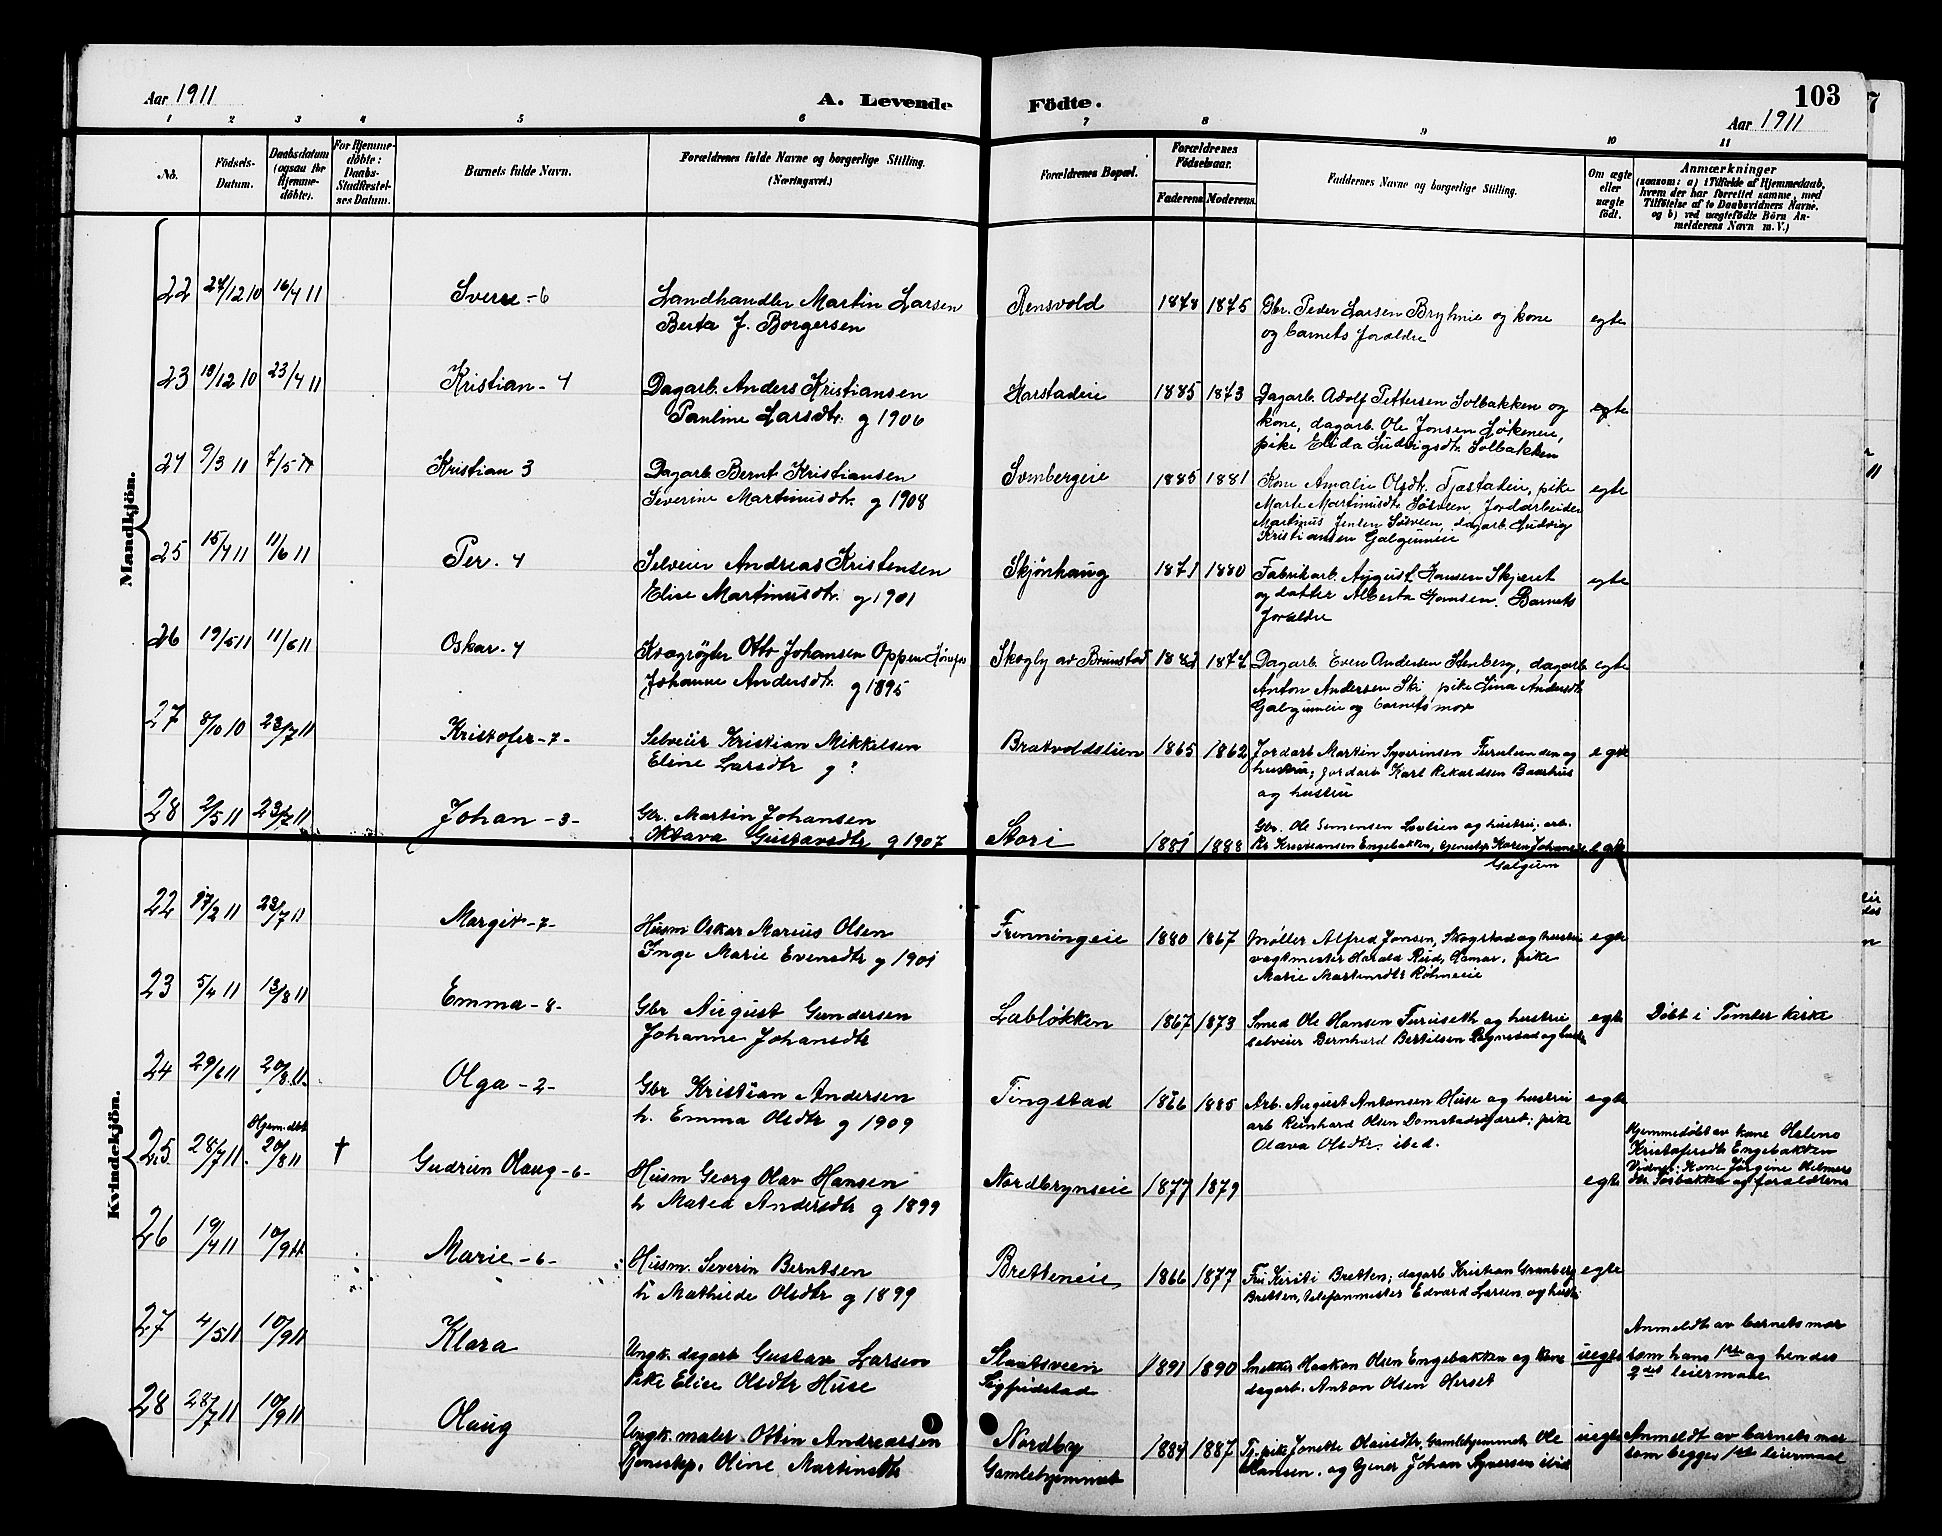 Aar 1911
A. Levende Födte.
103
Aar 1911
1 2 3 4 5 6 7 8 9 10 11
No.
Födsels-Datum.
Daabsdatum (ogsaa for Hjemmedöbte).
For Hjemmedöbte: Daabs-Stadfæstelses Datum.
Barnets fulde Navn.
Forældrenes fulde Navne og borgerlige Stilling. (Næringsvei.)
Forældrenes Bopæl.
Forældrenes Födselsaar.
Faderens Moderens
Faddernes Navne og borgerlige Stilling.
Om ægte eller uægte födt.
Anmærkninger
(saasom: a) i Tilfælde af Hjemmedaab,
hvem der har forrettet samme, med
Tilföielse af to Daabsvidners Navne.
og b) ved uægtefödte Börn Anmelderens Navn m. V.)
Mandkjön.
22 24/12 10 16/4 11 Sverre - 6 Landhandler Martin Larsen Rensvold 1878 1875 Gbr. Peder Larsen Bryhnie og kone egte
Berta J. Borgersen og barnets forældre
23 18/12 10 23/4 11 Kristian - 4 Dagarb. Anders Kristiansen Harstadeie 1885 1873 Dagarb. Adolf Pettersen Solbakken og egte
Pauline Larsdtr. g 1906 kone, dagarb. Ole Jonsen Løkeneie,
pike Elida Ludvigsdtr. Solbakken
24 9/3 11 7/5 11 Kristian 3 Dagarb. Bernt Kristiansen Svenbergeie 1885 1881 Kone Amalie Olsdtr. Tjæstadeie, pike egte
Severine Martinusdtr. g 1908 Marte Martinusdtr. Søsveen, Jordarbeider
Martinus Jensen Søsveen, dagarb. Ludvig
Kristiansen Galgumeie
25 15/4 11 11/6 11 Per. 4 Selveier Andreas Kristensen Skjønhaug 1871 1880 Fabrikarb. August Hansen Skjæret egte
Elise Martinusdtr. g 1901 og datter Alberta Hansen. Barnets
forældre
26 19/5 11 11/6 11 Oskar - 4 Kvægrøgter Otto Johansen Oppen Skogly av Brunstad 1874 Dagarb. Even Andersen Stenberg, dagarb. egte
Johanne Andersdtr. g 1895 Anton Andersen Ski, pike Lina Andersdtr.
Galgumeie og barnets mor
27 8/10 10 23/7 11 Kristofer - 7 - Selveier Kristian Mikkelsen Bratvoldstien 1865 1862 Jordarb Martin Syverinsen Furulunden og egte
Eline Larsdtr g ? hustru; jordarb Karl Rikardsen Baarhus
og hustru
28 2/5 11 23/7 11 Johan - 3 - Gbr. Martin Johansen Stori 1881 1888 Gbr. Ole Simensen Lovlien og hustru; arb. egte
Oktava Gustavsdtr g 1907 Kristiansen Engebakken, tjenestep. Karen Johansen
Galgum
Kvindekjön.
22 17/2 11 23/7 11 Margit - 7 - Husm Oskar Marius Olsen Frenningeie 1880 1867 Møller Alfred Jonsen, Skogstad og hustru egte
Inge Marie Evensdtr g 1901 vagtmester Harald Ruud, Hamar, pike
Marie Martinsdtr Røhneeie
23 5/4 11 13/8 11 Emma - 8 - Gbr August Gundersen Labløkken 1867 1873 Smed Ole Hansen Furuseth og hustru egte Døbt i Tomter kirke
Johanne Johansdtr selveier Bernhard Bertilsen Rognstad og hustru
24 29/6 11 20/8 11 Olga - 2 - Gbr Kristian Andersen Tingstad 1866 1885 Arb. August Antonsen Huse og hustru egte
h. Emma Olsdtr g 1909 arb Reinhard Olsen Domstadskjæret; pike
Olava Olsdtr. ibid.
25 28/7 11 Hjem. dbt 20/8 11 † Gudrun Olaug - 6 - Husm Georg Olav Hansen Nordbrynseie 1877 1879 egte Hjemmedøbt av kone Helene
h Matea Andersdtr g 1899 Kristofersdtr Engebakken
Vidner: Kone Jørgine Helmers
dtr Solbakken og forældrene
26 19/4 11 10/9 11 Marie - 6 - Husm. Severin Berntsen Bretteneie 1866 1877 Fru Kirsti Bretten; dagarb Kristian Granberg egte
h Mathilde Olsdtr g 1899 Bretten, telefonmester Edvard Larsen og hustru
27 4/5 11 10/9 11 Klara Ungk. dagarb Gustav Larsen Slaatsveen 1891 1890 Snekker Haakon Olsen Engebakken og kone uegte Anmeldt av barnets mor
Pike Elise Olsdtr Huse Sigfridstad dagarb. Anton Olsen Herset som hans 1ste og hendes
2det leiermaal
28 28/7 11 10/9 11 Olaug Ungk. maler Ottin Andreassen Nordby 1884 1887 pike Jonette Olausdtr, Gamlehjemmet, Ole uegte Anmeldt av barnets mor
Tjenestep. Oline Martinsdtr Gamlehjemmet Hansen, og tjener Johan Syversen ibid som begges 1ste leiermaal